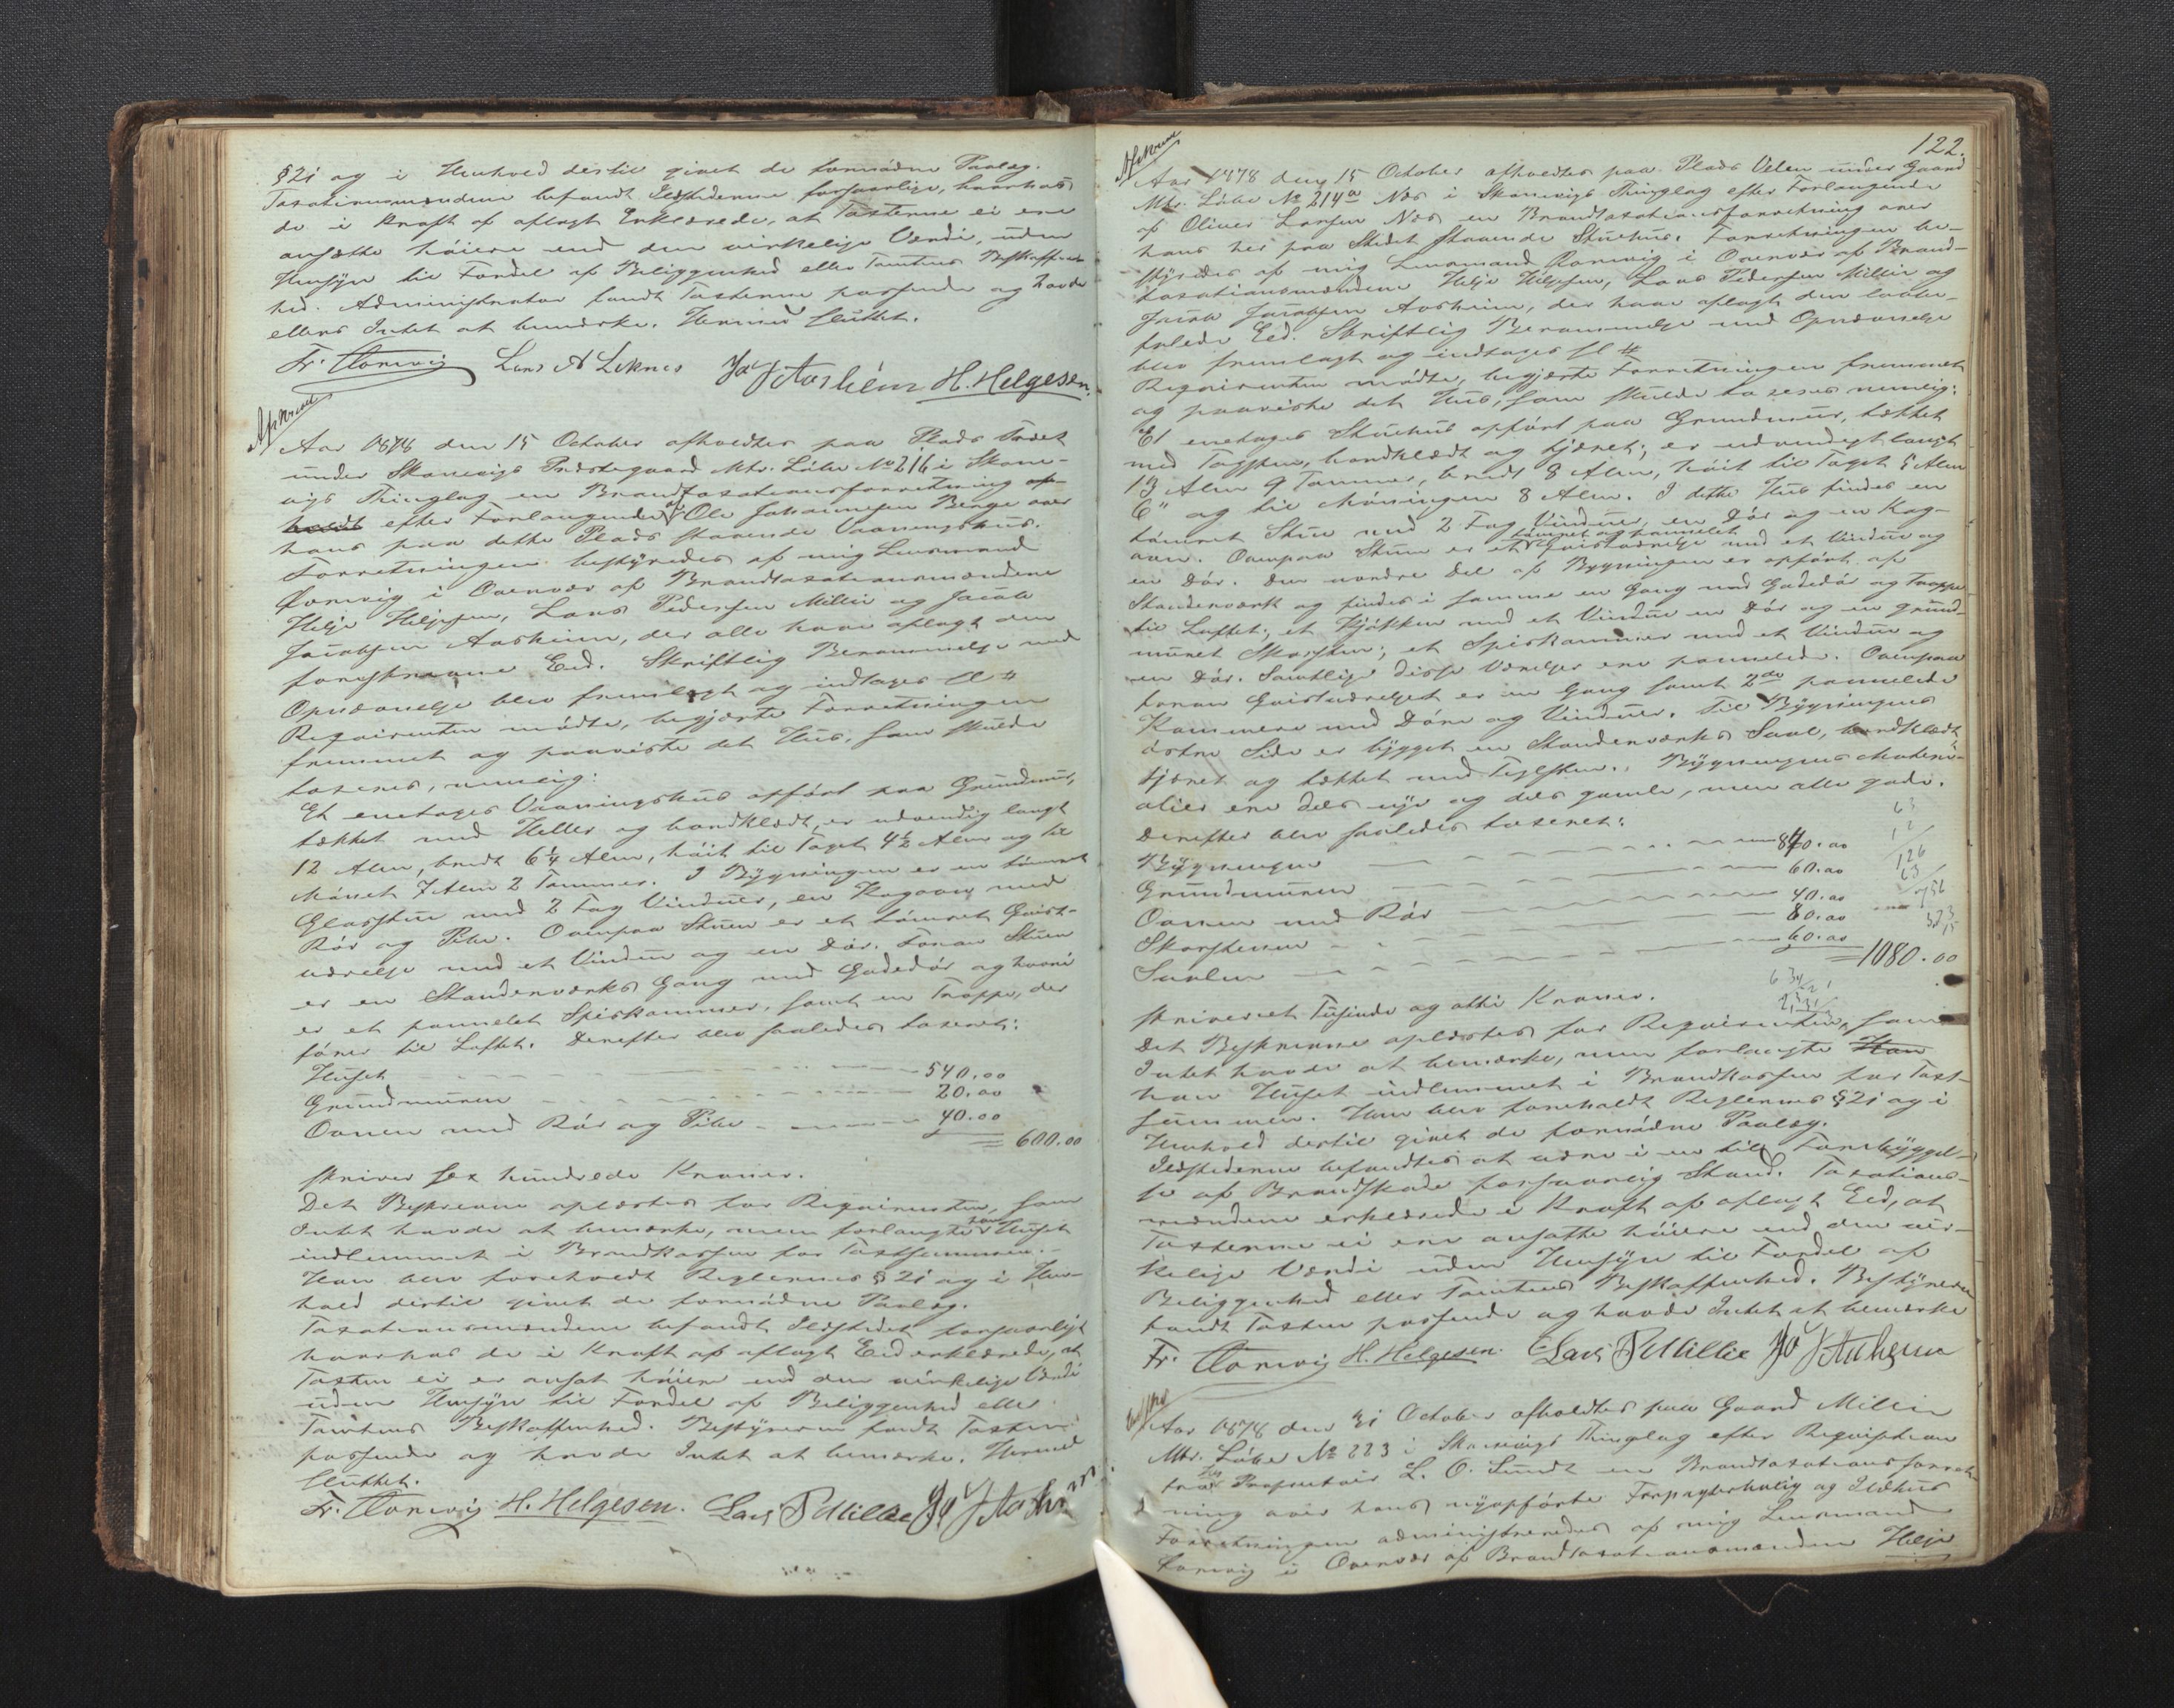 § 21 og i Henhold dertil givet de fornødne Paalæg.
Taxationsmændene befandt Ildstederne forsvarlige, hvorhos
de i Kraft af aflagt Ed erklærede, at Taxterne ei ere
ansatte høiere end den virkelige Værdi, uden
Hensyn til Fordel af Beliggenhed eller Tomtens Beskaffen-
hed. Administrator fandt Taxterne passende og havde
ellers Intet at bemærke. Hermed sluttet.
Fr. Lars A Leknes Jo J Aasheim H. Helgesen.
Afskreven
Aar 1878 den 15 October afholdtes paa Plads
under Skonevigs Præstegaard Mtr. Løbe No 216 i Skone-
vigs Thinglag en Brandtaxationsforretning af-
holdt efter Forlangende af Ole Johannesen Berge over
hans paa dette Plads staaende Vaaningshus.
Forretningen bestyredes af mig Lensmand
i Overvær af Brandtaxationsmændene
Helje Heljesen, Lars Pedersen Millie og Jacob
Jacobsen Aasheim, der alle have aflagt den
foreskrevne Eed. Skriftlig Berammelse med
Opnævnelse blev fremlagt og indtages sl #
Reqvirenten mødte, begjærte Forretningen
fremmet og paaviste det Hus, som skulde
taxeres, nemlig:
Et enetages Vaaningshus opført paa Grundmur,
tækket med Heller og bordklædt, er udvendig langt
12 Alen, bredt 6 1/4 Alen, høit til Taget 4 1/2 Alen og til
Mønet 7 Alen 2 Tommer. I Bygningen er en tømret
Glasstue med 2 Fag Vinduer, en Kogeovn med
Rør og Pibe. Ovenpaa Stuen er et tømret Qvist-
værelse med et Vindue og en Dør. Foran Stuen
er en Standerværks Gang med Gadedør og hvori
er et pannelet Spiskammer, samt en Trappe, der
fører til Loftet. Derefter blev saaledes taxeret:
Huset 540.00
Grundmuren 20.00
Ovnen med Rør og Pibe 40.00
= 600.00
skriver sex hundrede Kroner.
Det Beskrevne oplæstes for Reqvirenten, som
Intet havde at bemærke, men forlangte han Huset
indlemmet i Brandkassen for Taxtsummen.
Han blev foreholdt Reglernes § 21 og i Hen-
hold dertil givet de fornødne Paalæg.
Taxationsmændene befandt Ildstedet forsvarligt
hvorhos de i Kraft af aflagt Eed erklærede, at
Taxten ei er ansat høiere end den virkelige Værdi
uden Hensyn til Fordel af Beliggenhed eller
Tomtens Beskaffenhed. Bestyreren fandt Taxten
passende og havde Intet at bemærke. Hermed
sluttet.
Fr. H. Helgesen. Lars P Millie Jo J Aasheim
122.
Afskreven
Aar 1878 den 15 October afholdtes paa Plads under Gaard
Mtr. Løbe No 214a Næs i Skonevigs Thinglag efter Forlangende
af Oliver Larsen Næs en Brandtaxationsforretning over
hans her paa Stedet staaende Stuehus. Forretningen be-
styredes af mig Lensmand i Overvær af Brand-
taxationsmændene Helje Heljesen, Lars Pedersen Millie og
Jacob Jacobsen Aasheim, der have aflagt den lovbe-
falede Eed. Skriftlig Berammelse med Opnævnelse
blev fremlagt og indtages sl #
Reqvirenten mødte, begjærte Forretningen fremmet
og paaviste det Hus, som skulde taxeres nemlig:
Et enetages Stuehus opført paa Grundmur, tækket
med Tagsten, bordklædt og tjæret; er udvendigt langt
13 Alen 9 Tommer, bredt 8 Alen, høit til Taget 5 Alen
6" og til Møningen 8 Alen. I dette Hus findes en
tømret Stue med 2 Fag Vinduer, en Dør og en Kog-
ovn. Ovenpaa Stuen er et tømret og pannelet Qvistværelse med et Vindue og
en Dør. Den nordre Del af Bygningen er opført af
Standerværk og findes i samme en Gang med Gadedør og Trappe
til Loftet; et Kjøkken med et Vindue en Dør og en grund-
muret Skorsten; et Spiskammer med et Vindue og
en Dør. Samtlige disse Værelser ere pannelede. Ovenpaa
foran Qvistværelset er en Gang samt 2de pannelede
Kammere med Døre og Vinduer. Til Bygningens
østre Side er bygget en Standerværks Sval, bordklædt
tjæret og tækket med Teglsten. Bygningens Materi-
alier ere dels nye og dels gamle, men alle gode.
Derefter blev saaledes taxeret:
Bygningen 840.00
Grundmuren 60.00
Ovnen med Rør 40.00
Skorstenen 80.00
Svalen 60.00
= 1080.00
63
12
126
63
756
skriver et Tusinde og otti Kroner.
Det Beskrevne oplæstes for Reqvirenten, som
Intet havde at bemærke, men forlangte Han
han Huset indlemmet i Brandkassen for Taxt-
summen. Han blev foreholdt Reglernes § 21 og i
Henhold dertil givet de fornødne Paalæg.
Ildstederne befandtes at være i en til Forebyggel-
se af Brandskade forsvarlig Stand. Taxations-
mændene erklærede i Kraft af aflagt Eed, at
Taxterne ei ere ansatte høiere end den vir-
kelige Værdi uden Hensyn til Fordel af
Beliggenhed eller Tomtens Beskaffenhed. Bestyreren
fandt Taxten passende og havde Intet at bemærke
Fr. H. Helgesen. Lars P Millie Jo J Aasheim
Aar 1878 den 31 October afholdtes paa Gaard Millie
Mtr. Løbe No 223 i Skonevigs Thinglag efter Reqvisition
fra Proprietair L. O. Sundt en Brandtaxationsforret-
ning over hans nyopførte Forpagterbolig og Ildhus
Forretningen administreredes af mig Lensmand
i Overvær af Brandtaxationsmændene Helje